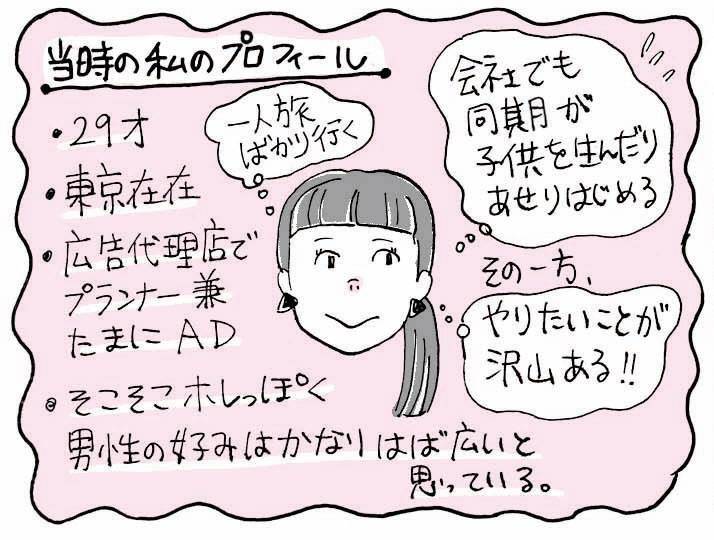 当時の私のプロフィール
・29才
・東京在在
・広告代理店で
プランナー兼
たまにAD
・そこそこホレっぽく
男性の好みはかなりはば広いと
思っている。
一人旅
ばかり行く
会社でも
同期が
子供を生んだり
あせりはじめる
その一方、
やりたいことが
沢山ある!!